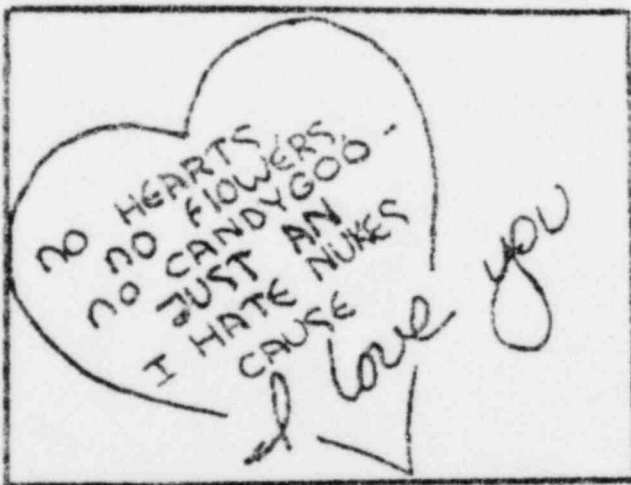 NO HEARTS,
NO FLOWERS,
NO CANDYGOO -
JUST AN
I HATE NUKES
CAUSE
I love you